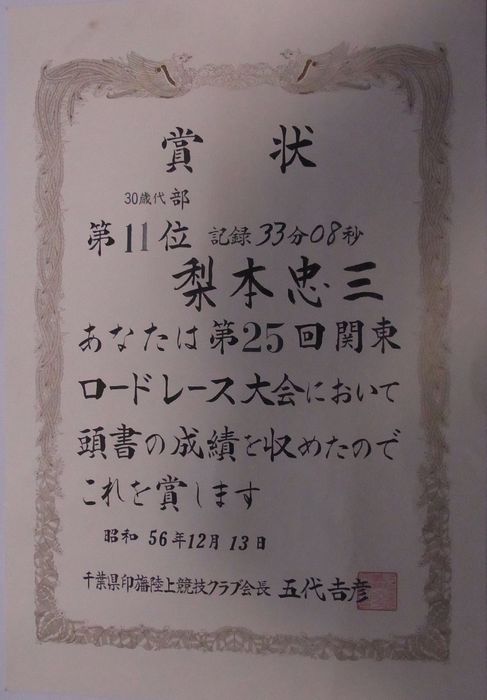 賞状
30歳代部
第11位 記録33分08秒
梨本忠三
あなたは第25回関東
ロードレース大会において
頭書の成績を収めたので
これを賞します
昭和 56年12月13日
千葉県印旛陸上競技クラブ会長 五代吉彦